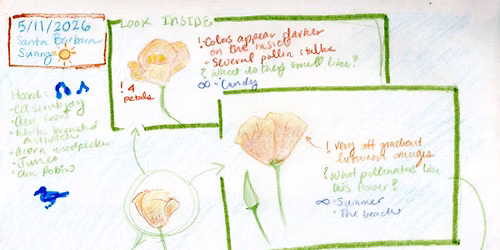 5/11/2026
Santa Barbara
Sunny
LOOK INSIDE
! Colors appear darker
on the inside
! Several pollen stalks
? What do they smell like?
∞ Candy
! 4
petals
Heard:
• CA scrub jay
• am crow
• white breasted
nuthatch
• acorn woodpecker
• Junco
• am Robin
! very soft gradient
between oranges
? What pollinates like
this flower?
∞ Summer
• The beach